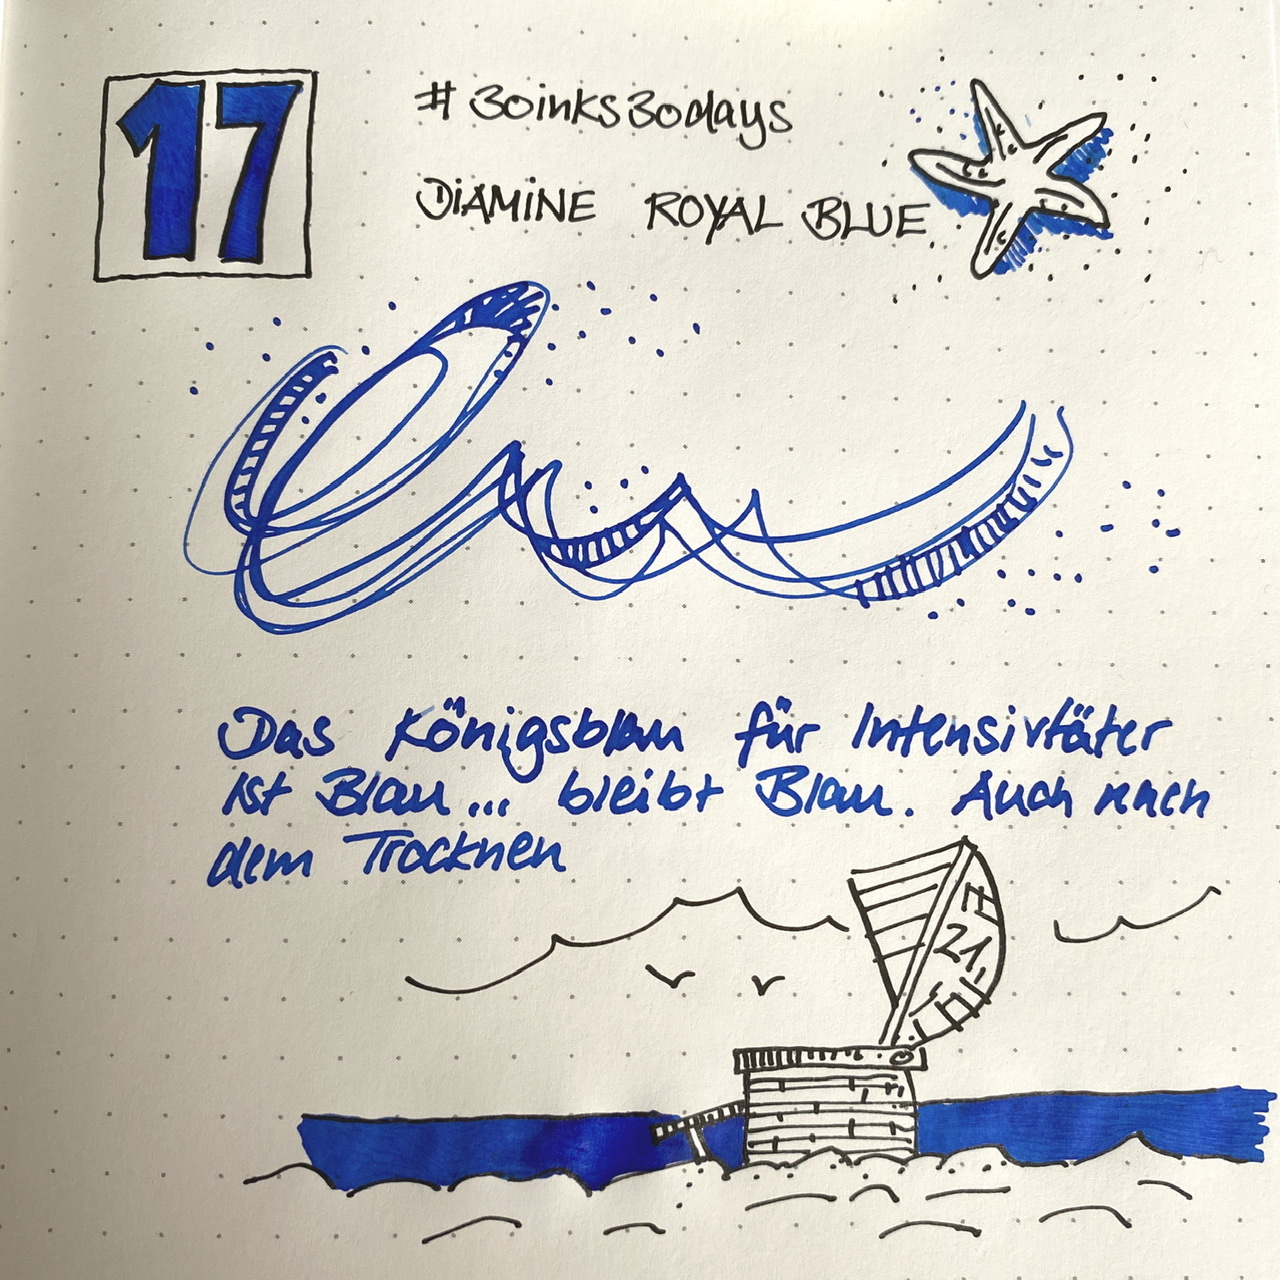 17
#30inks30days
DIAMINE ROYAL BLUE
Das Königsblau für Intensivtäter
ist Blau... bleibt Blau. Auch nach
dem Trocknen
21